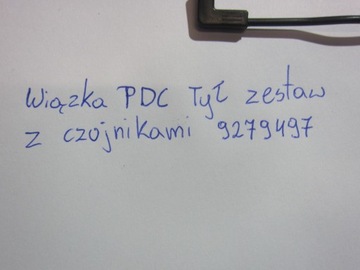 Wiązka PDC Tył zestaw
z czojnikami 9279497